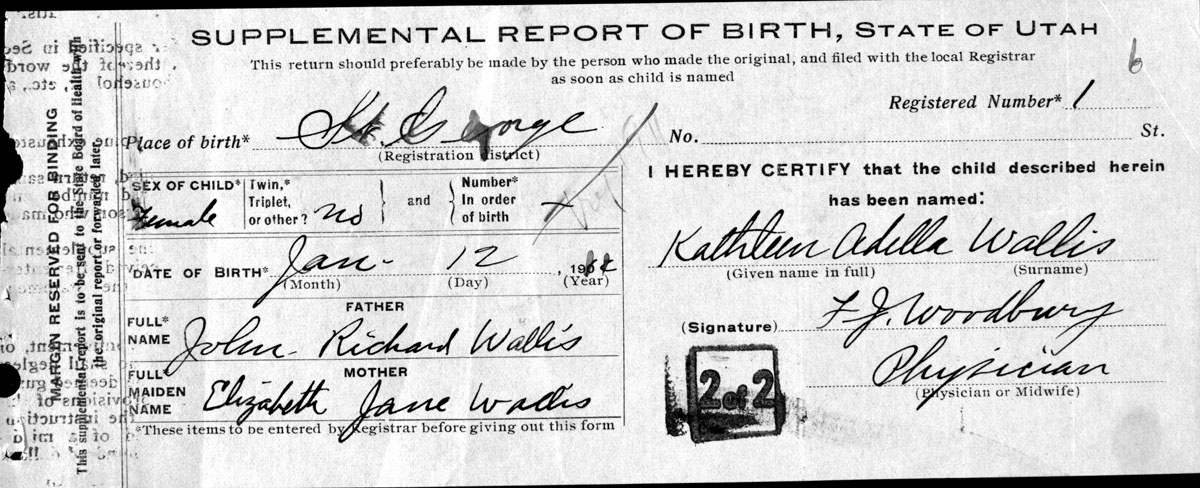 SUPPLEMENTAL REPORT OF BIRTH, STATE OF UTAH
This return should preferably be made by the person who made the original, and filed with the local Registrar
as soon as child is named
6
Registered Number* 1
Place of birth* St. George No. St.
(Registration district)
SEX OF CHILD* Female
Twin,* Triplet, or other? No
and
Number* In order of birth
DATE OF BIRTH* Jan. 12, 19
(Month) (Day) (Year)
FATHER
FULL* NAME John Richard Wallis
MOTHER
FULL* MAIDEN NAME Elizabeth Jane Wallis
*These items to be entered by Registrar before giving out this form
I HEREBY CERTIFY that the child described herein
has been named:
Kathleen Adella Wallis
(Given name in full) (Surname)
(Signature) F. J. Woodbury
Physician
(Physician or Midwife)
2 of 2
MARGIN RESERVED FOR BINDING
This supplemental report is to be sent to the State Board of Health with
the original report or forwarded later.